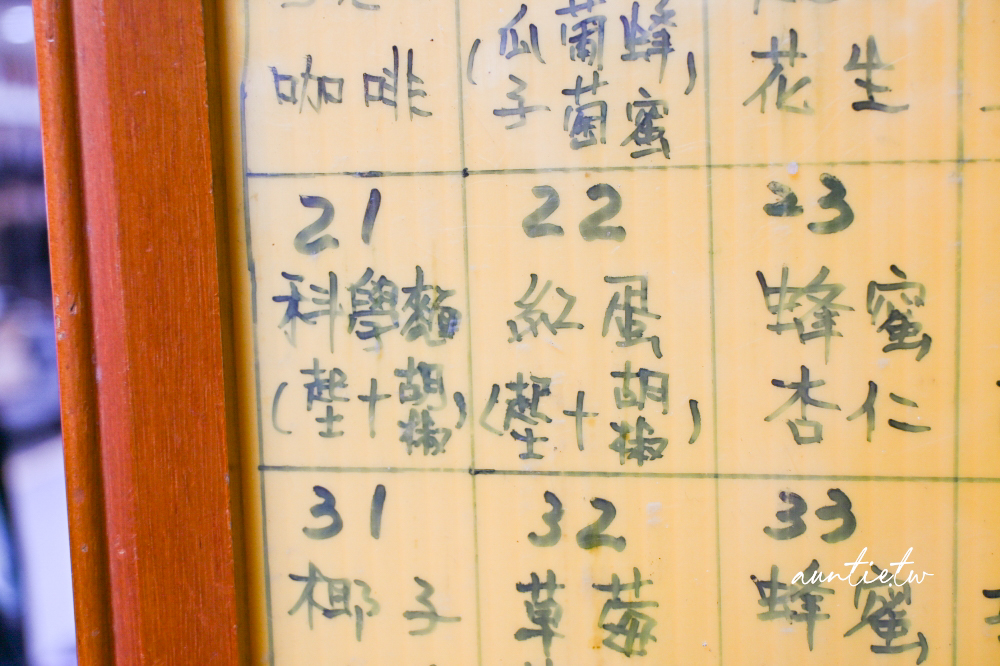 咖啡
(瓜子葡萄蜂蜜)
花生
21
科學麵
(起士+胡椒)
22
紅蛋
(起士+胡椒)
23
蜂蜜
杏仁
31
椰子
32
草莓
33
蜂蜜
auntietw